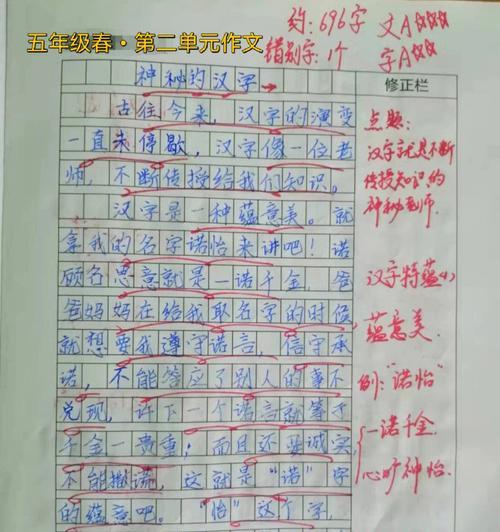 约:696字 文A☆☆☆
错别字:1个 字A☆☆
五年级春·第二单元作文
神秘的汉字
修正栏
古往今来,汉字的演变
一直未停歇,汉字像一位老
师,不断传授给我们知识。
汉字是一种蕴意美。就
拿我的名字诺怡来讲吧!诺
顾名思意就是一诺千金,爸
爸妈妈在给我取名字的时候,
就想要我遵守诺言,信守承
诺,不能答应了别人的事不
兑现,许下一个诺言就等于
千金一贵重;而且还要诚实,
不能撒谎,这就是“诺”字
的蕴意吧。“怡”这个字,
点题:
汉字就是不断
传授知识的
神秘老师。
汉字特蕴(1)
蕴意美
例:“诺怡”
一诺千金
心旷神怡